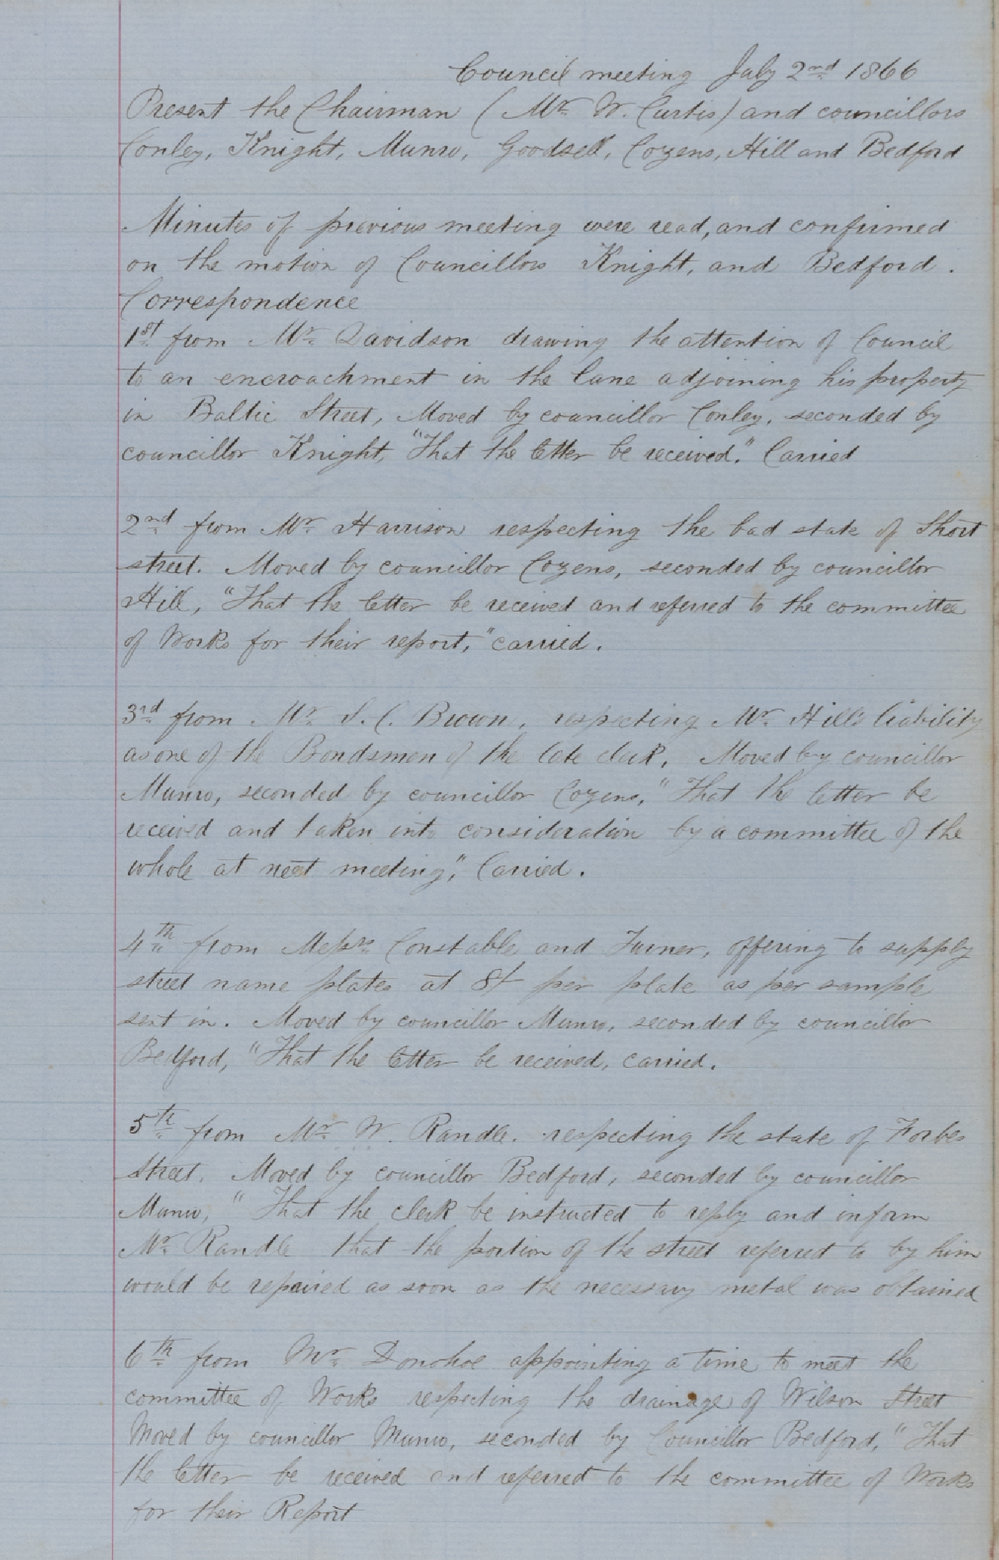 Council meeting July 2nd 1866
Present the Chairman (Mr W. Curtis) and councillors
Conley, Knight, Munro, Goodsell, Cozens, Hill and Bedford
Minutes of previous meeting were read, and confirmed
on the motion of Councillors Knight, and Bedford.
Correspondence
1st from Mr Davidson drawing the attention of Council
to an encroachment in the lane adjoining his property
in Baltic Street, Moved by councillor Conley, seconded by
councillor Knight, "That the letter be received." Carried
2nd from Mr Harrison respecting the bad state of Short
street. Moved by councillor Cozens, seconded by councillor
Hill, "That the letter be received and referred to the committee
of Works for their report," carried.
3rd from Mr S. C. Brown, respecting Mr Hill's liability
as one of the Bondsmen of the late clerk, Moved by councillor
Munro, seconded by councillor Cozens, "That the letter be
received and taken into consideration by a committee of the
whole at next meeting," Carried.
4th from Messrs Constable and Turner, offering to supply
street name plates at 8/ per plate as per sample
sent in. Moved by councillor Munro, seconded by councillor
Bedford, "That the letter be received, carried.
5th from Mr W. Randle. respecting the state of Forbes
Street. Moved by councillor Bedford, seconded by councillor
Munro, "That the clerk be instructed to reply and inform
Mr Randle that the portion of the street referred to by him
would be repaired as soon as the necessary metal was obtained
6th from Mr Donohoe appointing a time to meet the
committee of Works respecting the drainage of Wilson Street
Moved by councillor Munro, seconded by Councillor Bedford, "That
the letter be received and referred to the committee of Works
for their Report